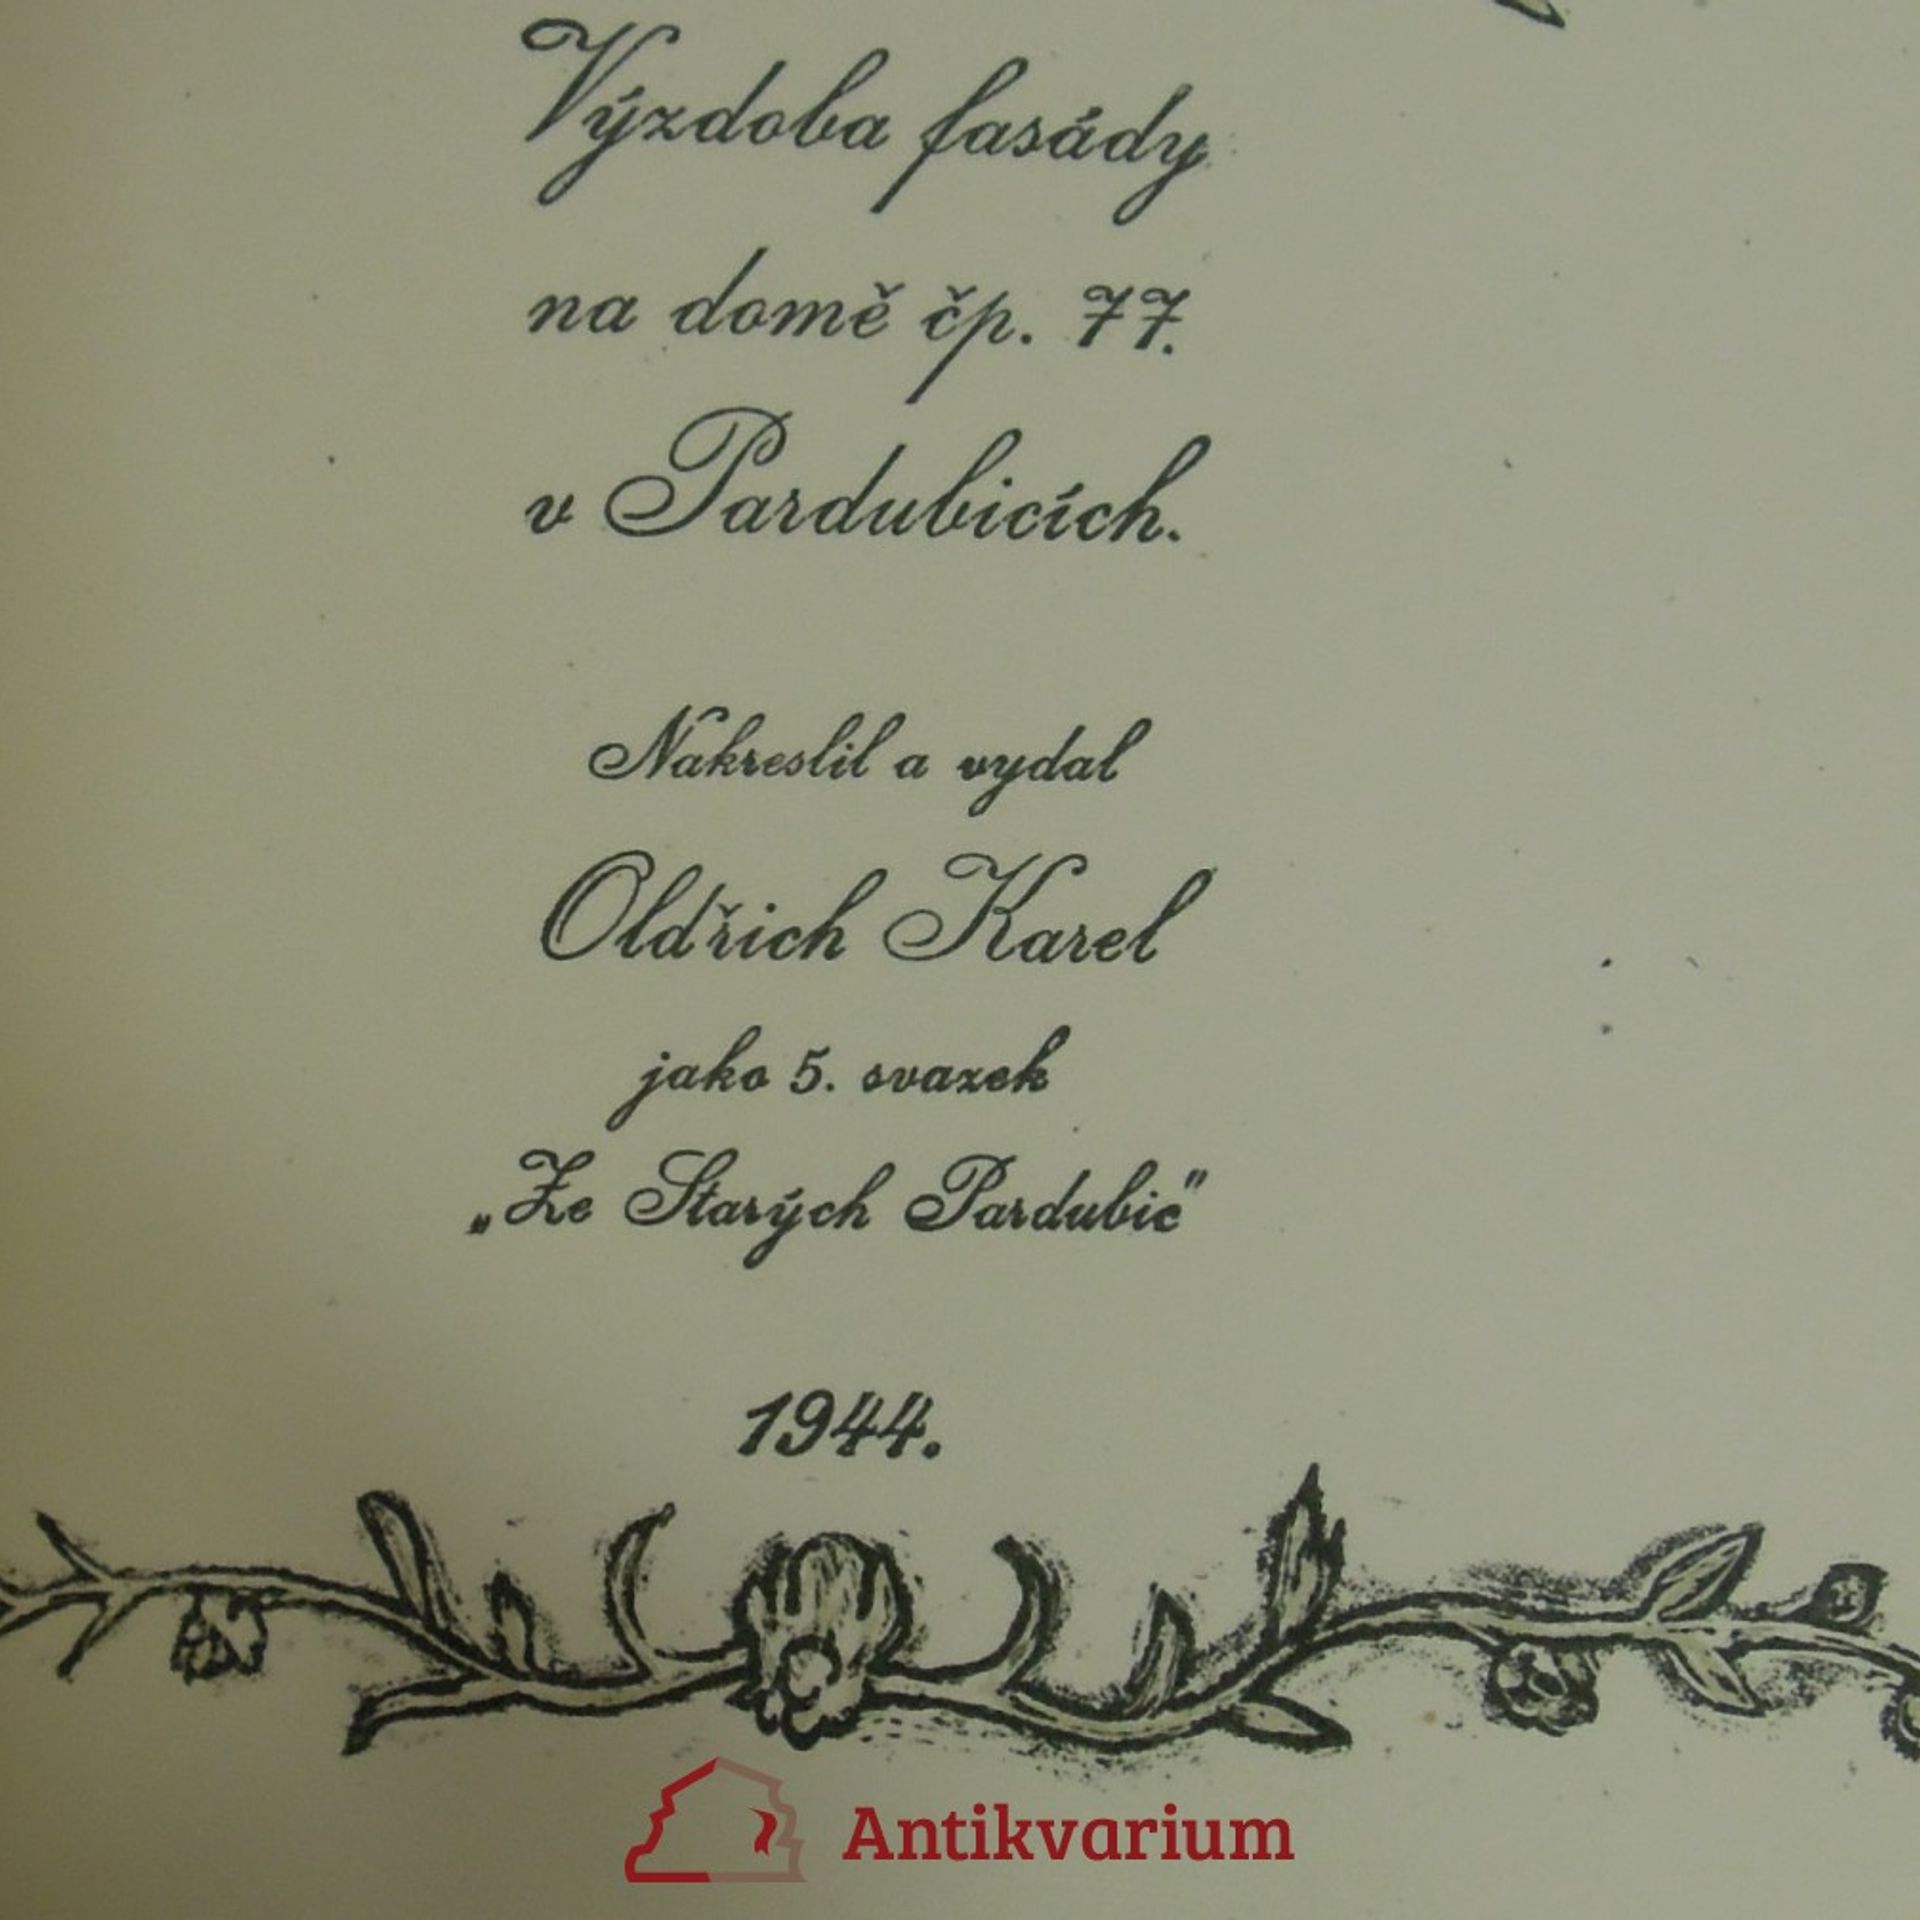 Výzdoba fasády
na domě čp. 77.
v Pardubicích.
Nakreslil a vydal
Oldřich Karel
jako 5. svazek
„Ze Starých Pardubic"
1944.
Antikvarium